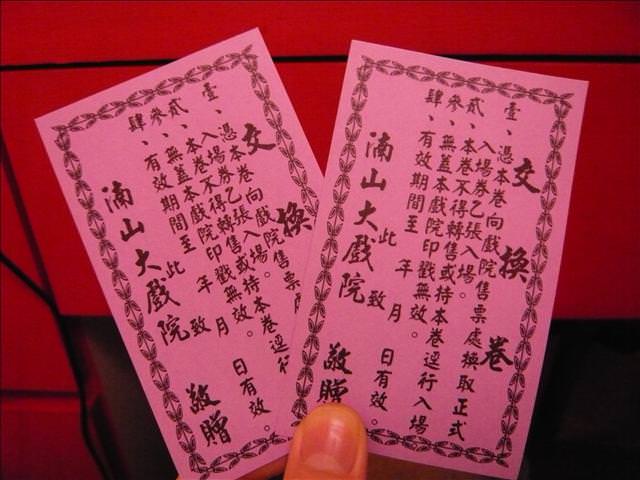 交換
壹、憑本卷向戲院售票處
入場券乙張入場。
貳、本卷不得轉售或持本卷逕行
參、無蓋本戲院印戳無效。
肆、有效期間至 年 月 日有效。
此致
湳山大戲院 敬贈
交換卷
壹、憑本卷向戲院售票處換取正式
入場券乙張入場。
貳、本卷不得轉售或持本卷逕行入場
參、無蓋本戲院印戳無效。
肆、有效期間至 年 月 日有效。
此致
湳山大戲院 敬贈